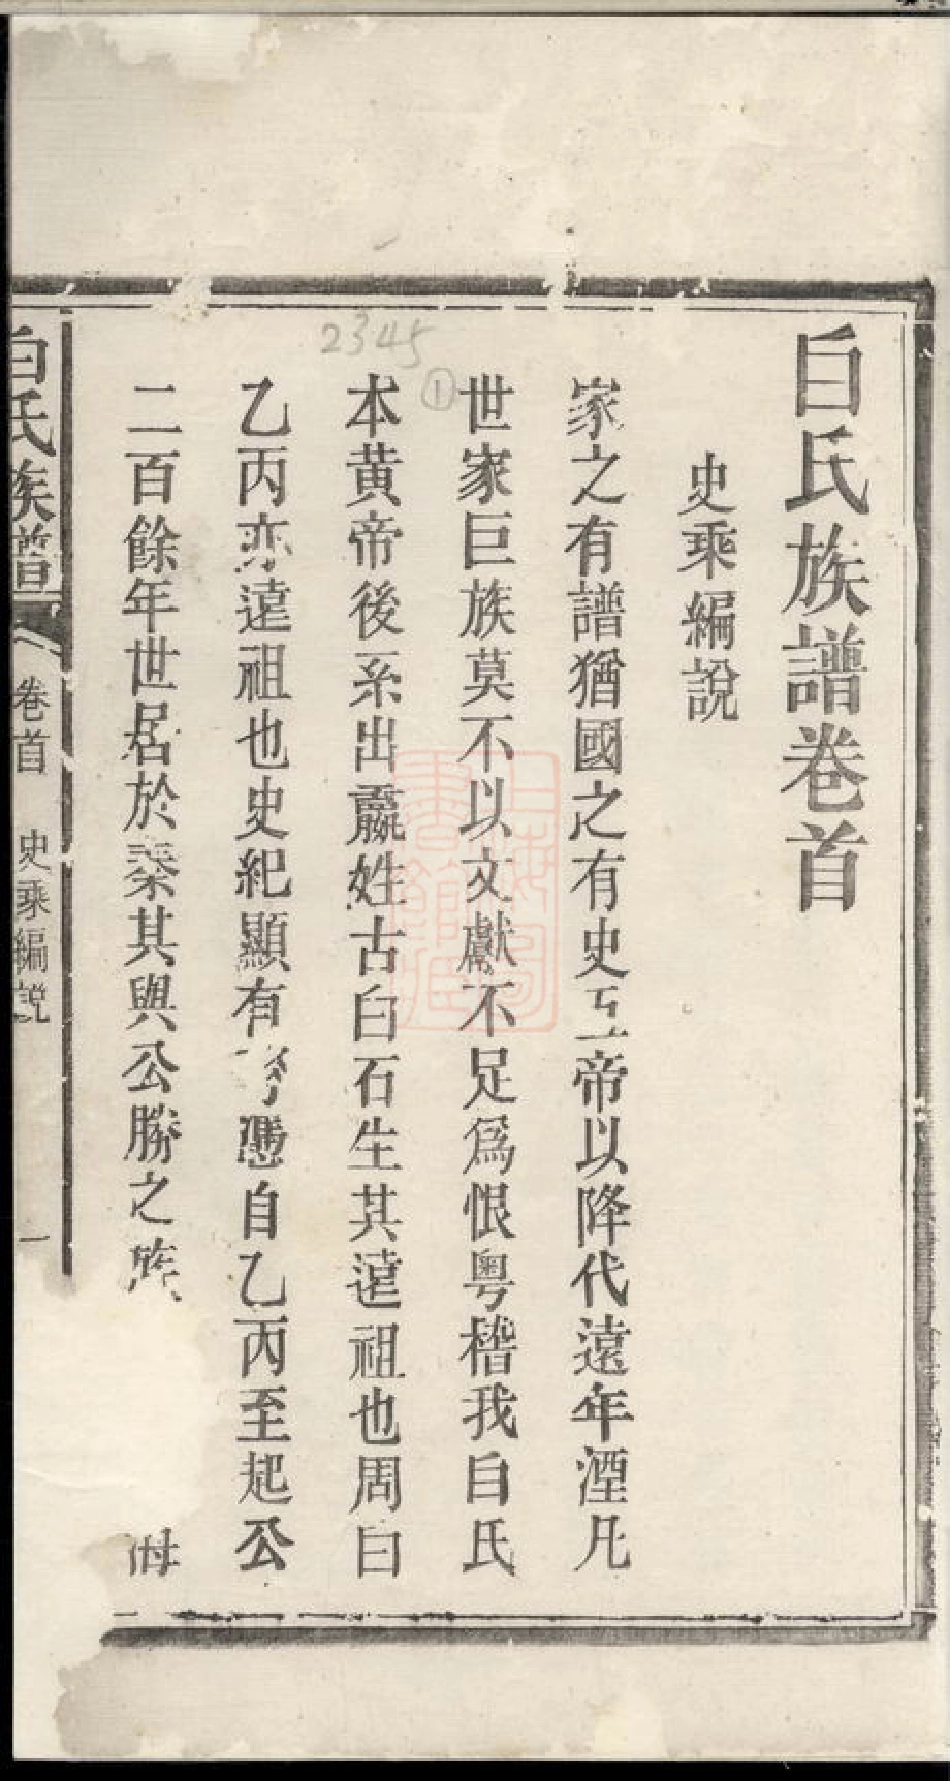 白氏族譜卷首
史乘編說
家之有譜猶國之有史五帝以降代遠年湮凡
世家巨族莫不以文獻不足為恨粵稽我白氏
本黃帝後系出嬴姓古白石生其遠祖也周白
乙丙亦遠祖也史紀顯有可憑自乙丙至起公
二百餘年世居於秦其與公勝之族
白氏族譜
卷首 史乘編說
一
2345
①
上海圖書館藏